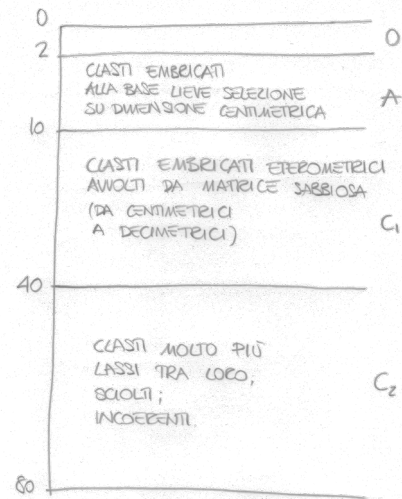 0
O
2
CLASTI EMBRICATI
ALLA BASE LIEVE SELEZIONE
SU DIMENSIONE CENTIMETRICA
A
10
CLASTI EMBRICATI ETEROMETRICI
AVVOLTI DA MATRICE SABBIOSA
(DA CENTIMETRICI
A DECIMETRICI)
C1
40
CLASTI MOLTO PIÙ
LASSI TRA LORO;
SCIOLTI;
INCOERENTI.
C2
80